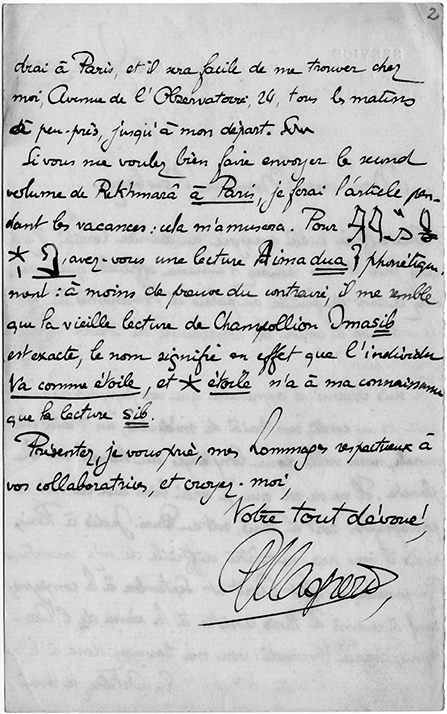 2
drai à Paris, et il sera facile de me trouver chez
moi, Avenue de l'Observatoire, 24, tous les matins
à peu-près, jusqu'à mon départ.
Si vous me voulez bien faire envoyer le second
volume de Rekhmarâ à Paris, je ferai l'article pen-
dant les vacances : cela m'amusera. Pour
avez-vous une lecture Aimadua? phonétique-
ment : à moins de preuve du contraire, il me semble
que la vieille lecture de Champollion Imasib
est exacte, le nom signifie en effet que l'individu
Va comme étoile, et * étoile n'a à ma connaissance
que la lecture sib.
Présentez, je vous prie, mes hommages respectueux à
vos collaboratrices, et croyez-moi,
Votre tout dévoué,
GMaspero